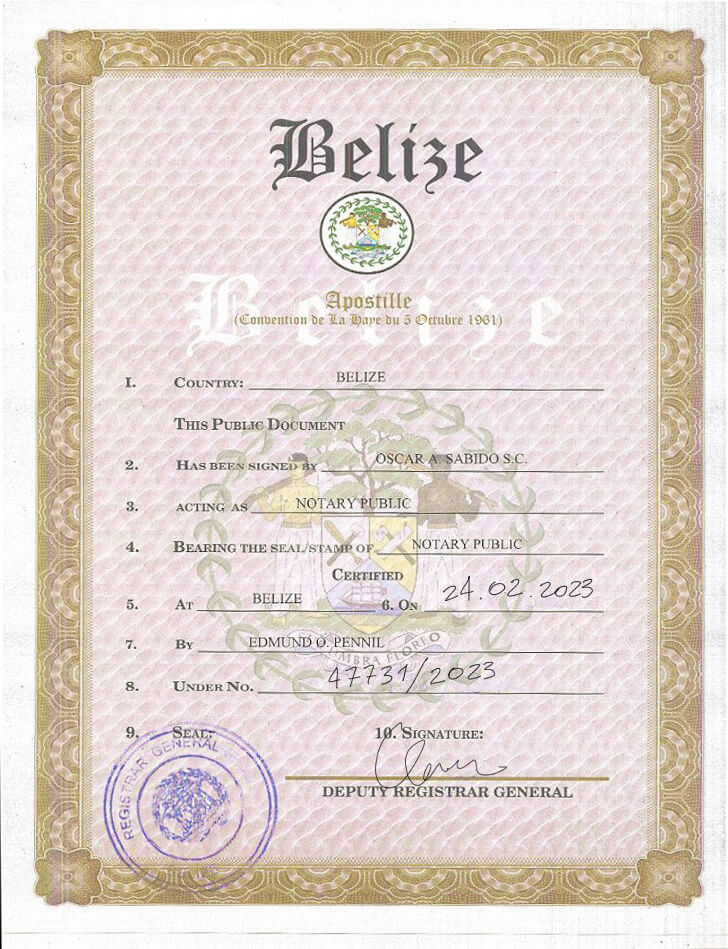 Belize
Apostille
(Convention de La Haye du 5 Octubre 1961)
Belize
1. COUNTRY: BELIZE
THIS PUBLIC DOCUMENT
2. HAS BEEN SIGNED BY OSCAR A. SABIDO S.C.
3. ACTING AS NOTARY PUBLIC
4. BEARING THE SEAL/STAMP OF NOTARY PUBLIC
CERTIFIED
5. AT BELIZE 6. ON 24.02.2023
7. BY EDMUND O. PENNIL
UMBRA FLOREO
8. UNDER NO. 47731/2023
9. SEAL: 10. SIGNATURE:
REGISTRAR GENERAL
DEPUTY REGISTRAR GENERAL